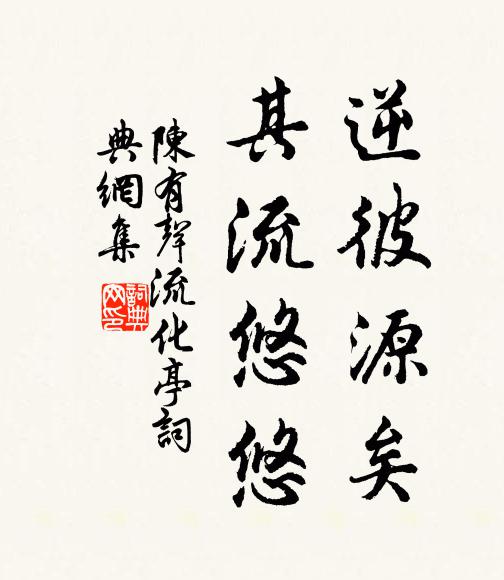 逆彼源矣
其流悠悠
陳有聲流化亭詞
典網集
詞典
网印